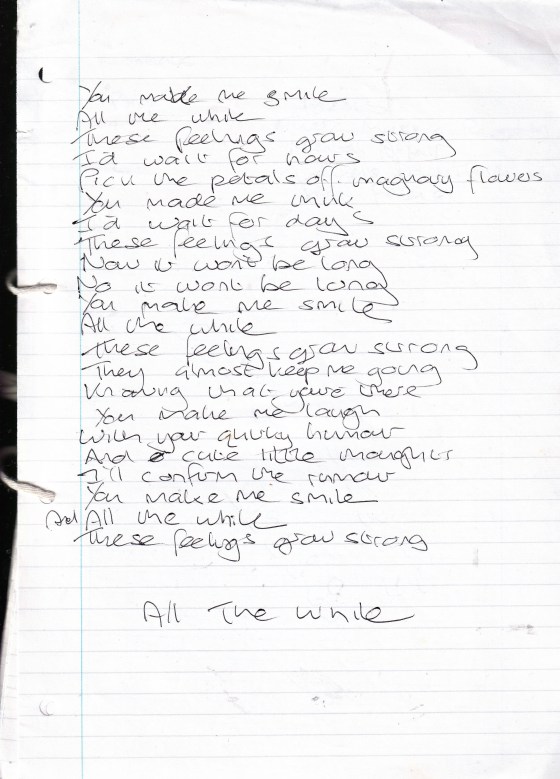 You make me smile
All the while
These feelings grow strong
I'd wait for hours
Pick the petals off imaginary flowers
You made me think
I'd wait for days
These feelings grow strong
Now it won't be long
No it wont be long
You make me smile
All the while
these feelings grow strong
They almost keep me going
Knowing that you're there
You make me laugh
With your quirky humour
And cute little thoughts
I'll confirm the rumour
You make me smile
And All the while
These feelings grow strong
All The While